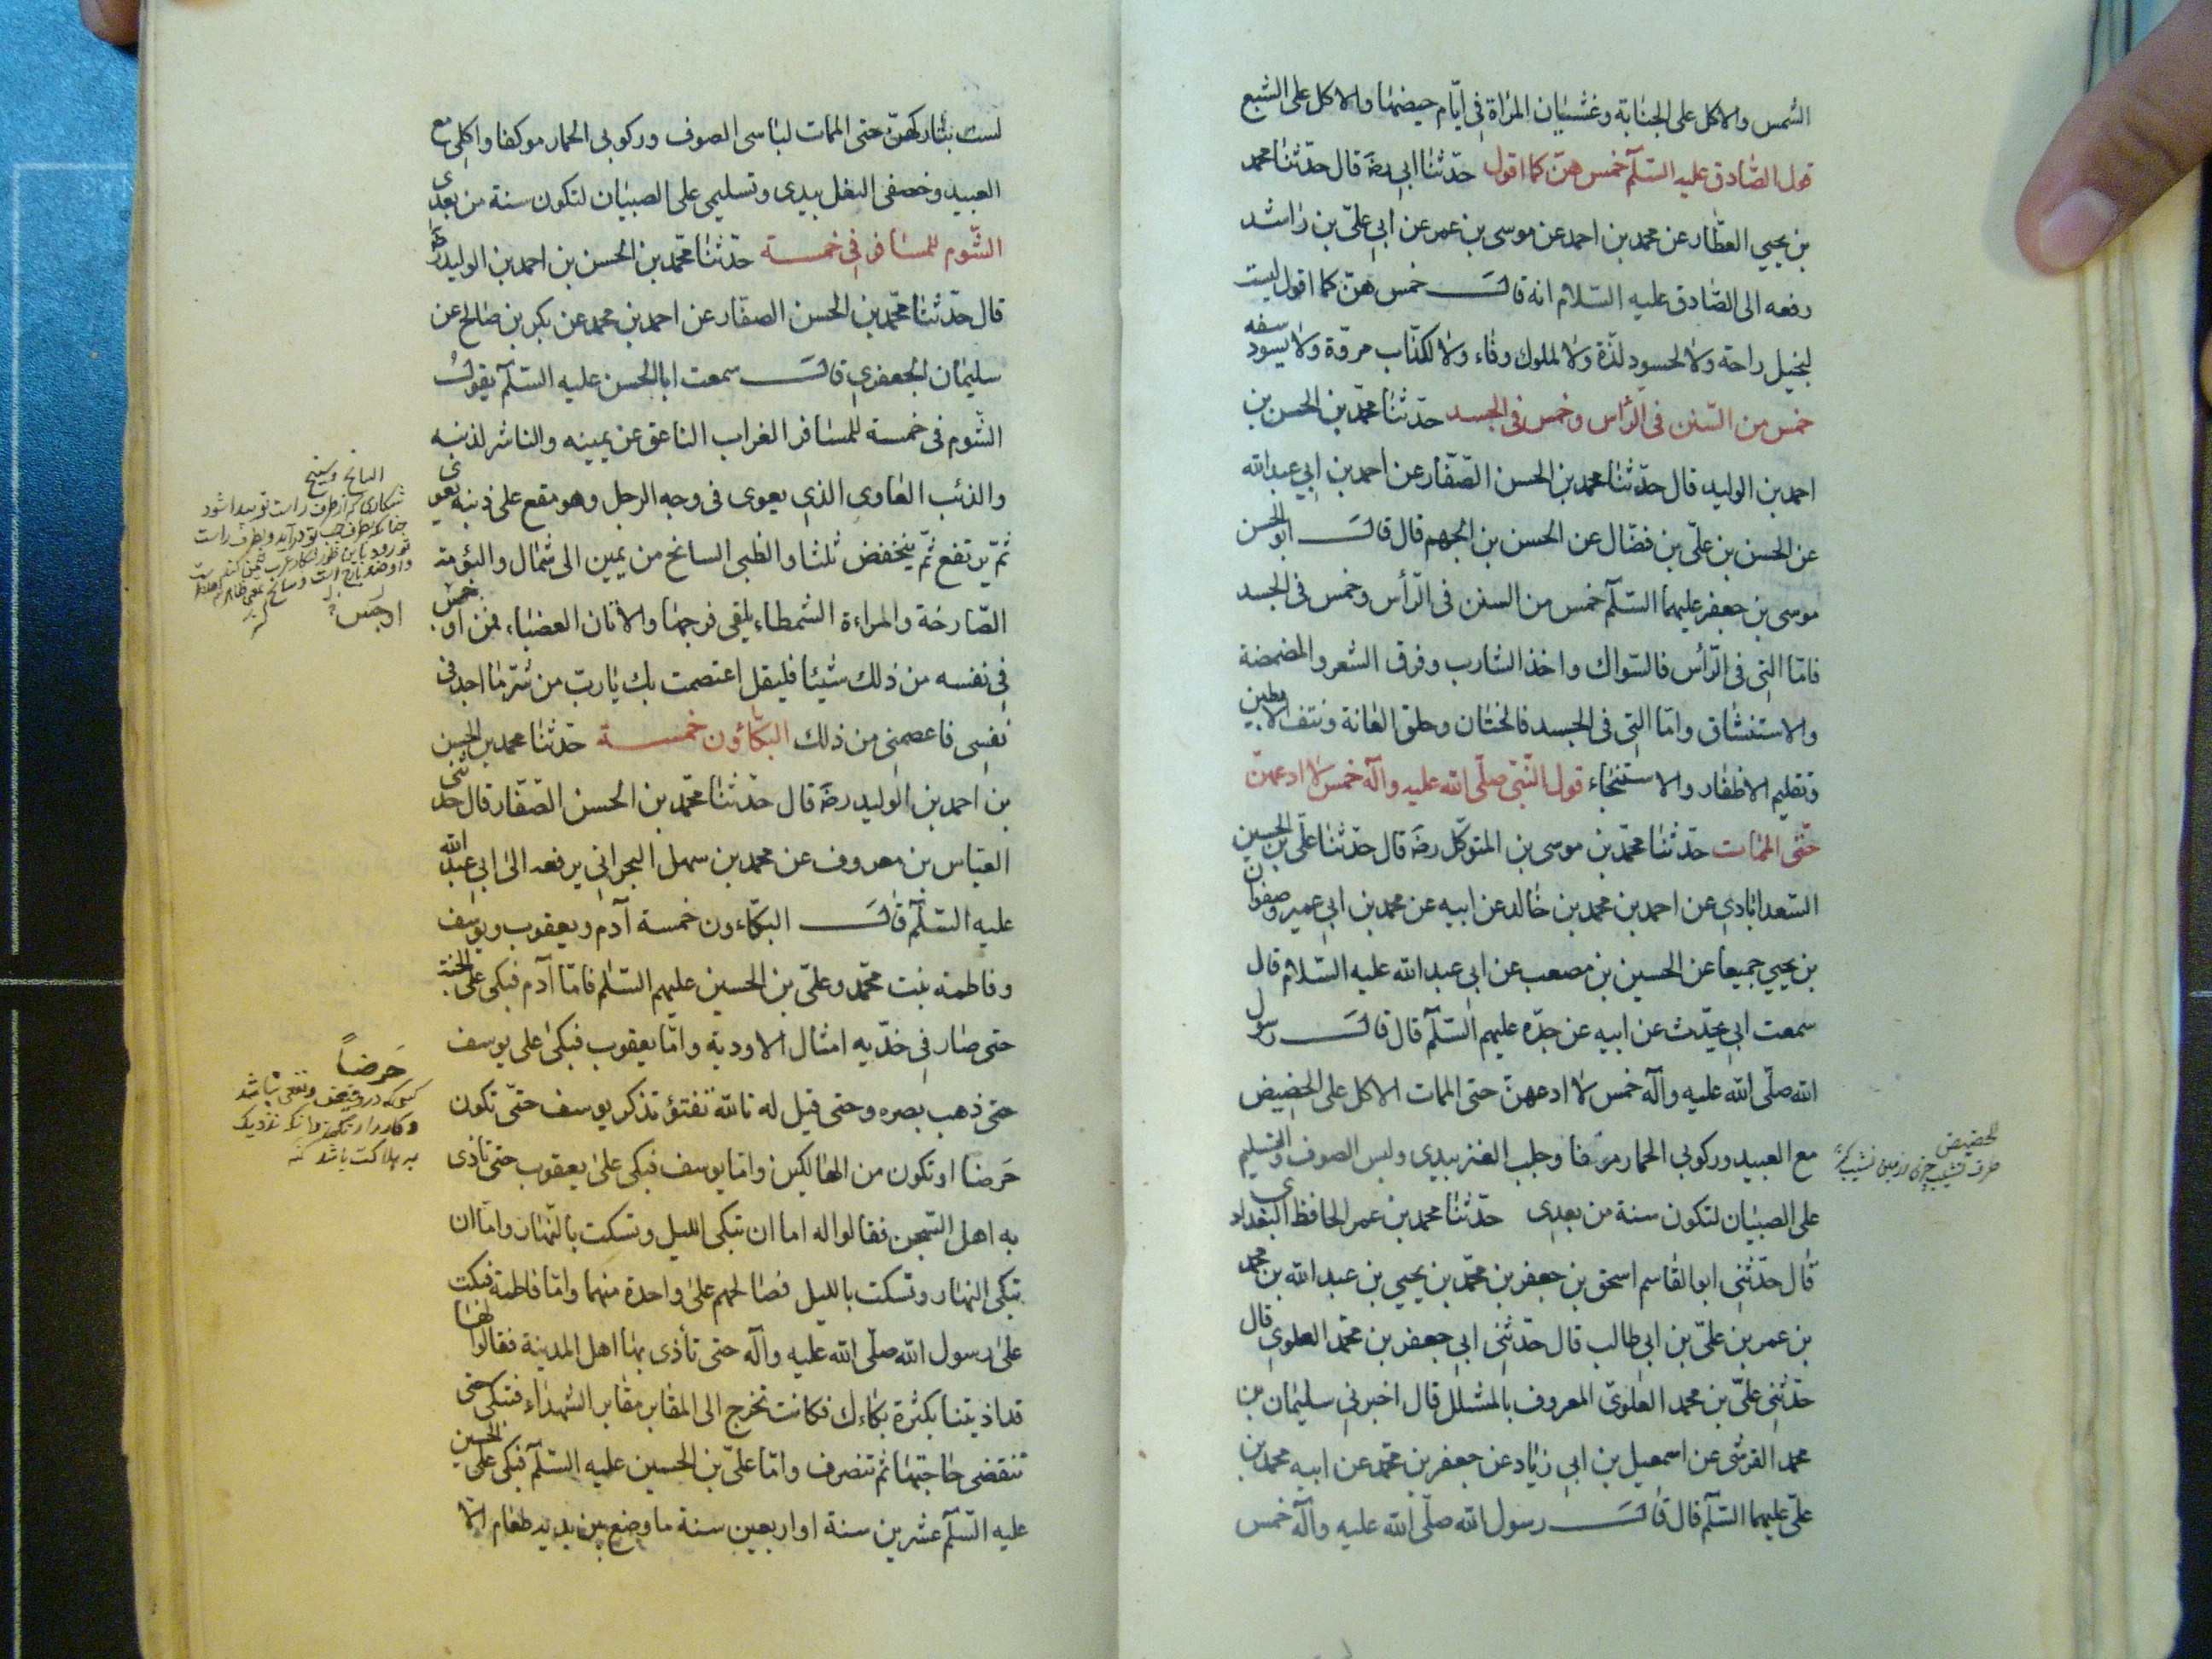 الشمس والاكل على الجنابة وغشيان المراة في ايّام حيضها والاكل على الشبع
قول الصّادق عليه السّلم خمس هنّ كما اقول حدّثنا ابي رضه قال حدّثنا محمد
بن يحيي العطّار عن محمد بن احمد عن موسى بن عمر عن ابي عليّ بن راشد
رفعه الى الصّادق عليه السّلام انه قال خمس هنّ كما اقول ليست
لبخيل راحة ولا لحسود لذّة ولا لملوك وفاء ولا لكذّاب مروّة ولا يسود سفيه
خمس من السّنن في الرّاس وخمس في الجسد حدّثنا محمّد بن الحسن بن
احمد بن الوليد قال حدّثنا محمد بن الحسن الصّفّار عن احمد بن ابي عبد الله
عن الحسن بن عليّ بن فضّال عن الحسن بن الجهم قال قال ابو الحسن
موسى بن جعفر عليهما السّلم خمس من السنن في الرّأس وخمس في الجسد
فامّا التي في الرّأس فالسّواك واخذ الشارب وفرق الشعر والمضمضة
والاستنشاق وامّا التي في الجسد فالختان وحلق العانة ونتف الابطين
وتقليم الاظفار والاستنجاء قول النّبيّ صلّى الله عليه وآله خمس لا ادعهنّ
حتّى الممات حدّثنا محمّد بن موسى بن المتوكّل رضه قال حدّثنا عليّ بن الحسين
السّعدابادي عن احمد بن محمد بن خالد عن ابيه عن محمد بن ابي عمير وصفوان
بن يحيي جميعا عن الحسين بن مصعب عن ابي عبد الله عليه السّلام قال
سمعت ابي يحدّث عن ابيه عن جدّه عليهم السّلم قال قال رسول
الله صلّى الله عليه وآله خمس لا ادعهنّ حتى الممات الاكل على الحضيض
مع العبيد وركوبي الحمار وحلب العنز بيدي ولبس الصوف والتسليم
على الصبيان لتكون سنة من بعدي حدّثنا محمد بن عمر الحافظ البغدادي
قال حدّثني ابو القاسم اسحق بن جعفر بن محمّد بن يحيي بن عبد الله بن محمد
بن عمر بن عليّ بن ابي طالب قال حدّثني ابي جعفر بن محمّد العلوي قال
حدّثني عليّ بن محمد العلويّ المعروف بالمشلل قال اخبرني سليمان بن
محمد القرشي عن اسمعيل بن ابي زياد عن جعفر بن محمّد عن ابيه محمد بن
عليّ عليهما السّلم قال قال رسول الله صلّى الله عليه وآله خمس
للحضيض
لست بتاركهنّ حتى الممات لباسي الصوف وركوبي الحمار موكفا واكلي مع
العبيد وخصفي النعل بيدي وتسليمي على الصبيان لتكون سنة من بعدي
الشّوم للمسافر في خمسة حدّثنا محمّد بن الحسن بن احمد بن الوليد رضه
قال حدّثنا محمّد بن الحسن الصفّار عن احمد بن محمد عن بكر بن صالح عن
سليمان الجعفري قال سمعت ابا الحسن عليه السّلم يقول
الشّوم في خمسة للمسافر الغراب الناعق عن يمينه والناشر لذنبه
والذئب العاوى الذي يعوى في وجه الرجل وهو مقع على ذنبه يعوى
ثمّ يرتفع ثمّ ينخفض ثلثا والظبي السانح من يمين الى شمال والبؤمة
الصّارخة والمراءة الشمطاء يلقى فرجها والاتان العضباء فمن اوجس
في نفسه من ذلك شيئا فليقل اعتصمت بك يا ربّ من شرّ ما اجد في
نفسي فاعصمني من ذلك البكّاؤن خمسة حدّثنا محمد بن الحسن
بن احمد بن الوليد رضه قال حدّثنا محمّد بن الحسن الصّفّار قال حدّثني
العبّاس بن معروف عن محمد بن سهل البحراني يرفعه الى ابي عبد الله
عليه السّلم قال البكّاءون خمسة آدم ويعقوب ويوسف
وفاطمة بنت محمّد وعليّ بن الحسين عليهم السّلم فامّا آدم فبكى على الجنة
حتى صار في خدّيه امثال الاودية وامّا يعقوب فبكى على يوسف
حتى ذهب بصره وحتى قيل له تالله تفتؤ تذكر يوسف حتّى تكون
حَرضا او تكون من الهالكين وامّا يوسف فبكى على يعقوب حتى تاذى
به اهل السّجن فقالوا له اما ان تبكي الليل وتسكت بالنّهار وامّا ان
تبكي النهار وتسكت بالليل فصالحهم على واحدة منهما وامّا فاطمة فبكت
على رسول الله صلّى الله عليه وآله حتى تأذى بها اهل المدينة فقالوا لها
قد اذيتنا بكثرة بكاءك فكانت تخرج الى المقابر مقابر الشهداء فتبكي حتى
تنقضي حاجتها ثم تنصرف وامّا عليّ بن الحسين عليه السّلم فبكى على الحسين
عليه السّلم عشرين سنة او اربعين سنة ما وضع بين يديه طعام الّا
اوجس
حَرضاً